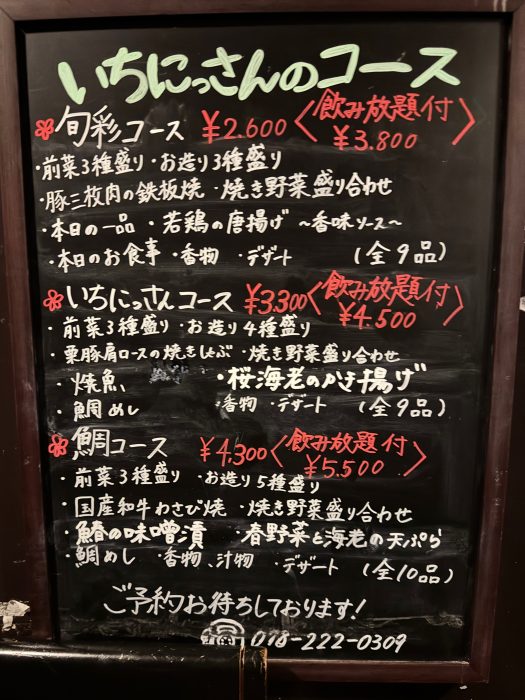 いちにっさんのコース
旬彩コース ¥2.600 〈飲み放題付 ¥3.800〉
・前菜3種盛り・お造り3種盛り
・豚三枚肉の鉄板焼 ・焼き野菜盛り合わせ
・本日の一品 ・若鶏の唐揚げ 〜香味ソース〜
・本日のお食事 ・香物 ・デザート (全9品)
いちにっさんコース ¥3.300 〈飲み放題付 ¥4.500〉
・前菜3種盛り ・お造り4種盛り
・栗豚肩ロースの焼きしゃぶ ・焼き野菜盛り合わせ
・焼魚 ・桜海老のかき揚げ
・鯛めし ・香物 ・デザート (全9品)
鯛コース ¥4.300 〈飲み放題付 ¥5.500〉
・前菜3種盛り ・お造り5種盛り
・国産和牛わさび焼 ・焼き野菜盛り合わせ
・鰆の味噌漬 ・春野菜と海老の天ぷら
・鯛めし ・香物、汁物 ・デザート (全10品)
ご予約お待ちしております!
018-222-0309